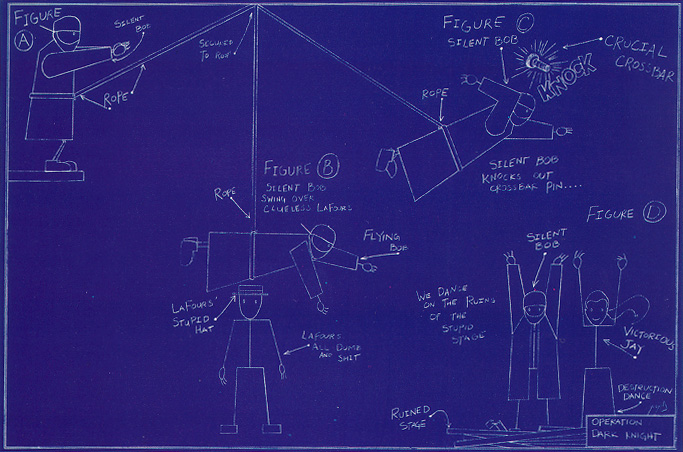 FIGURE
A
SILENT
BOB
ROPE
SECURED
TO ROOF
FIGURE B
SILENT BOB
SWING OVER
CLUELESS LAFOURS
ROPE
FLYING
BOB
LAFOURS'
STUPID
HAT
LAFOURS
ALL DUMB
AND SHIT
FIGURE C
SILENT BOB
CRUCIAL
CROSSBAR
KNOCK
ROPE
SILENT BOB
KNOCKS OUT
CROSSBAR PIN....
FIGURE D
SILENT
BOB
WE DANCE
ON THE RUINS
OF THE
STUPID
STAGE
VICTORIOUS
JAY
DESTRUCTION
DANCE
RUINED
STAGE
OPERATION
DARK KNIGHT